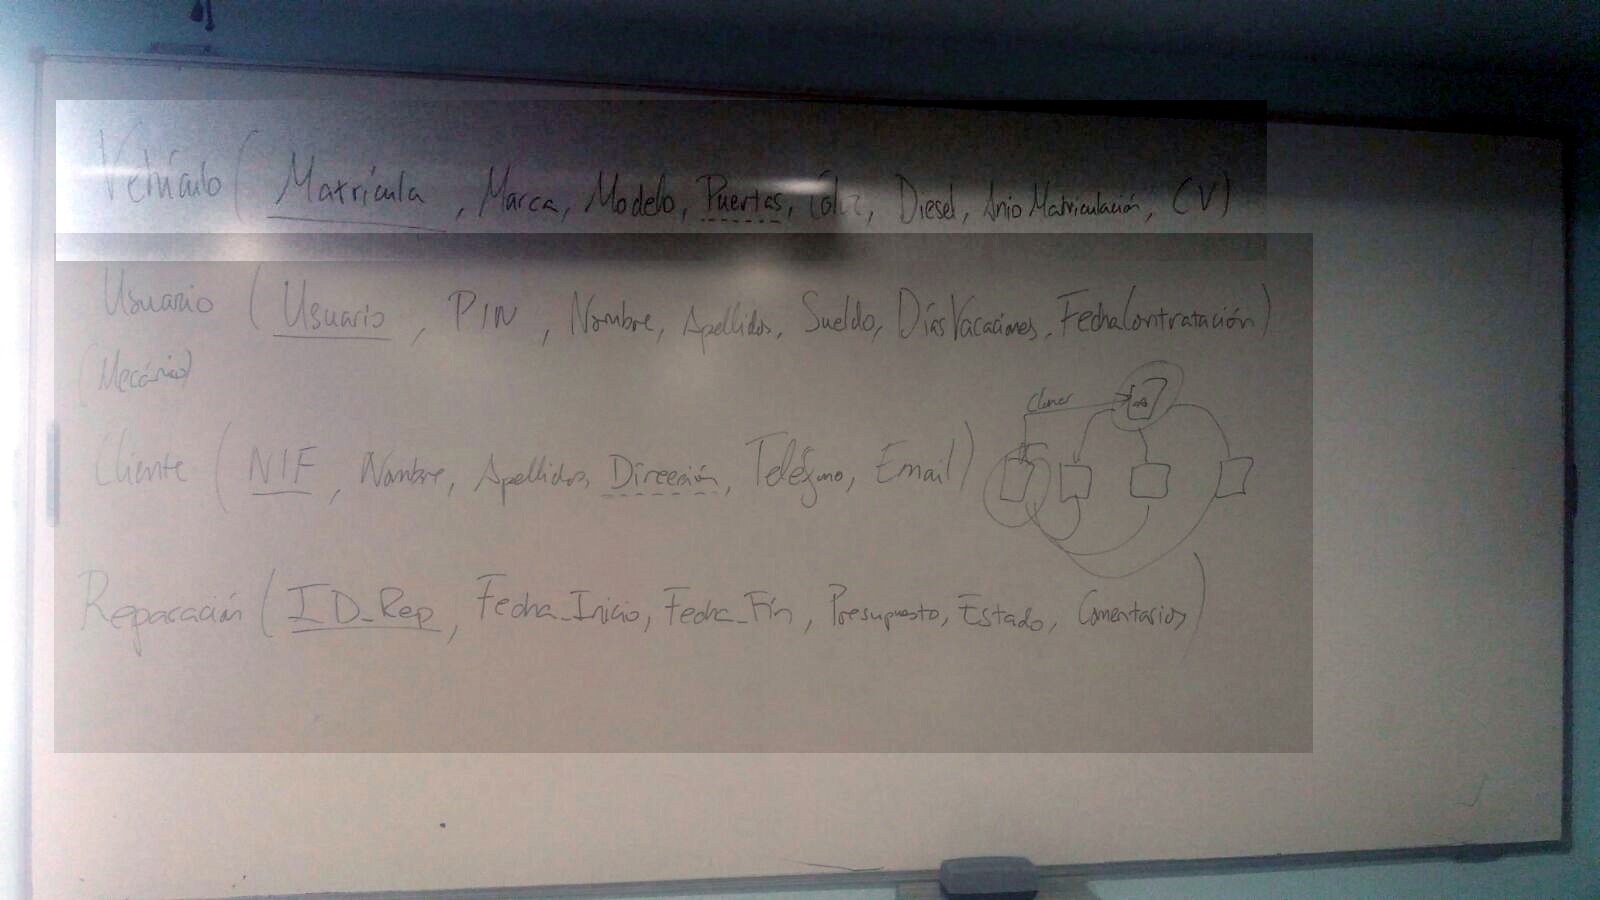 Vehículo ( Matrícula , Marca, Modelo, Puertas, , Diesel, AnioMatriculación, CV)
Usuario ( Usuario , PIN , Nombre, Apellidos, Sueldo, DíasVacaciones, FechaContratación)
(Mecánico)
Cliente ( NIF , Nombre, Apellidos, Dirección, Teléfono, Email)
Reparación ( ID_Rep , Fecha_Inicio, Fecha_Fin, Presupuesto, Estado, Comentarios)